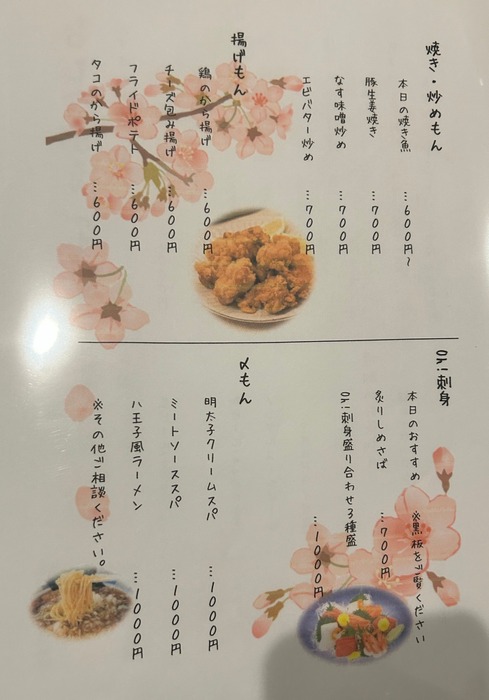 焼き・炒めもん
本日の焼き魚 …600円~
豚生姜焼き …700円
なす味噌炒め …700円
エビバター炒め …700円
揚げもん
鶏のから揚げ …600円
チーズ包み揚げ …600円
フライドポテト …600円
タコのから揚げ …600円
Oh!刺身
本日のおすすめ ※黒板をご覧ください
炙りしめさば …700円
Oh!刺身盛り合わせ3種盛 …1000円
〆もん
明太子クリームスパ …1000円
ミートソーススパ …1000円
八王子風ラーメン …1000円
※その他ご相談ください。